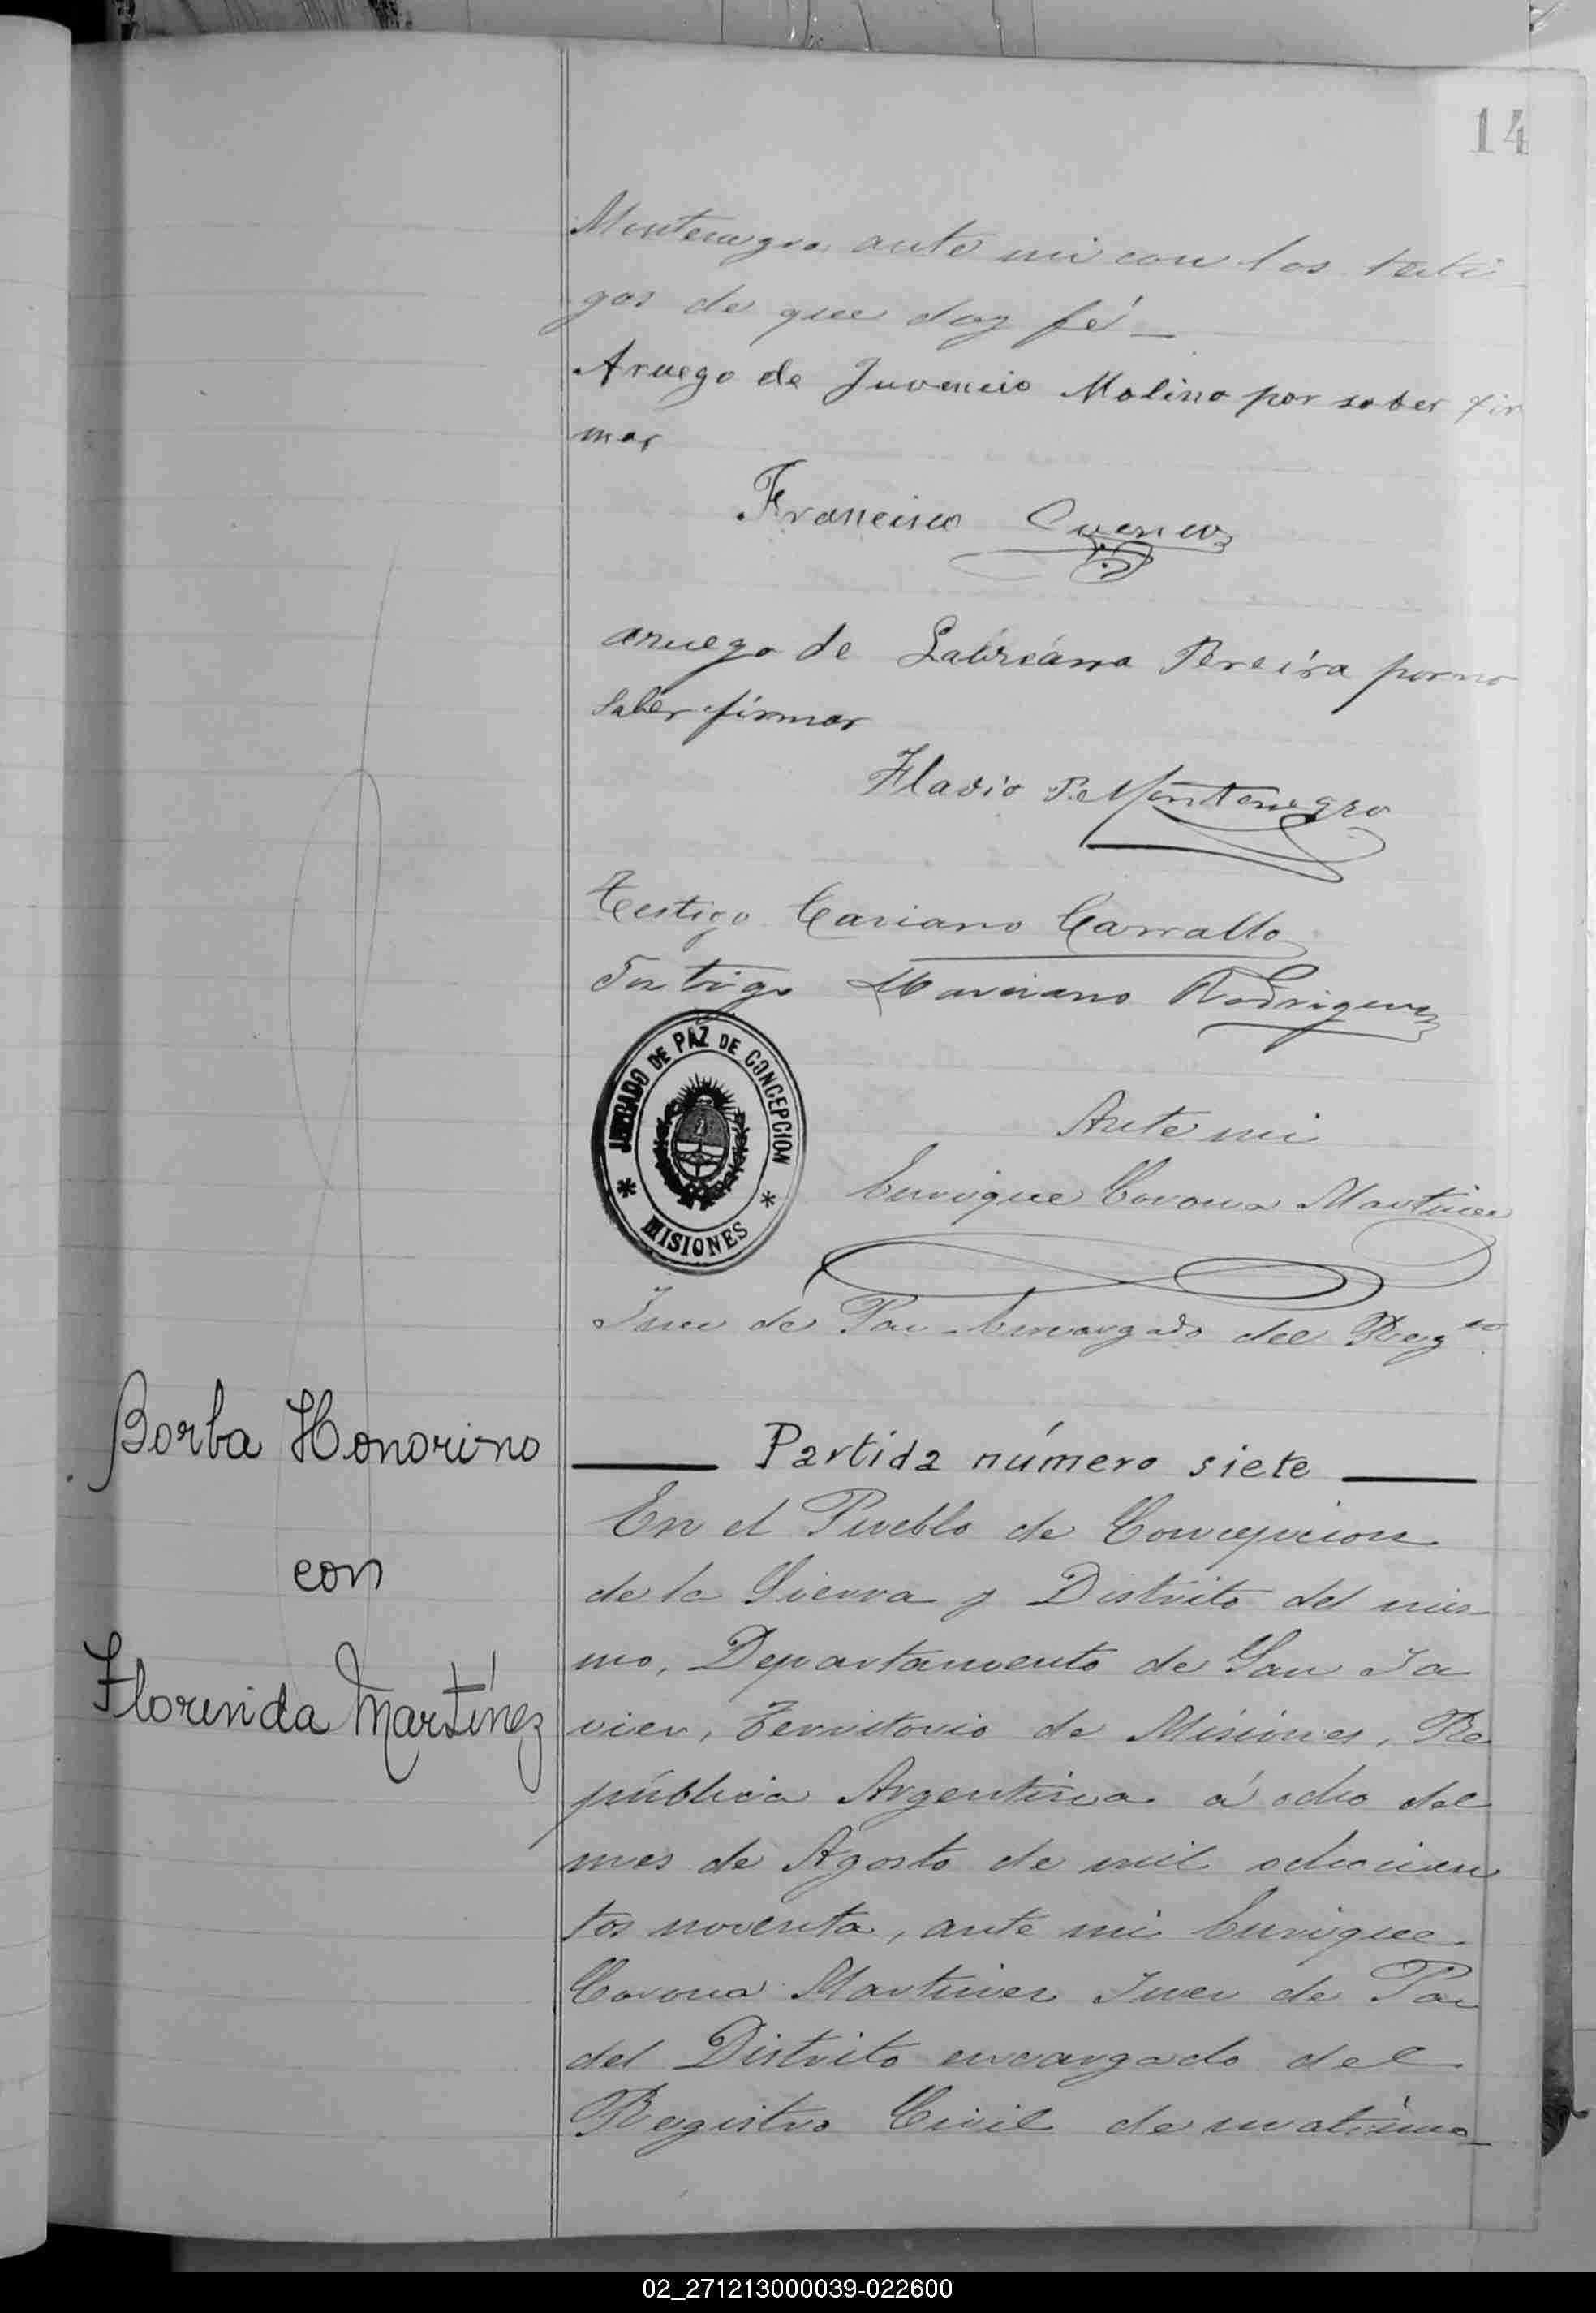 14
Montenegro ante mi con los testi
gos de que doy fé —
Aruego de Juvencio Molino por saber fir
mar
Francisco Cuenca
aruego de Labreana Pereira por no
saber firmar
Flavio P. Montenegro
Testigo Cariano Carvallo
Testigo Marciano Rodriguez
JUZGADO DE PAZ DE CONCEPCION
* MISIONES *
Ante mi
Enrique Corona Martinez
Juez de Paz Encargado del Reg.ro
Borba Honorino
con
Florinda Martínez
Partida número siete
En el Pueblo de Concepcion
de la Sierra y Distrito del mis
mo, Departamento de San Ja
vier, Territorio de Misiones, Re
pública Argentina á ocho del
mes de Agosto de mil ochocien
tos noventa, ante mi Enrique
Corona Martinez Juez de Paz
del Distrito encargado del
Registro Civil de matrimo
02_271213000039-022600